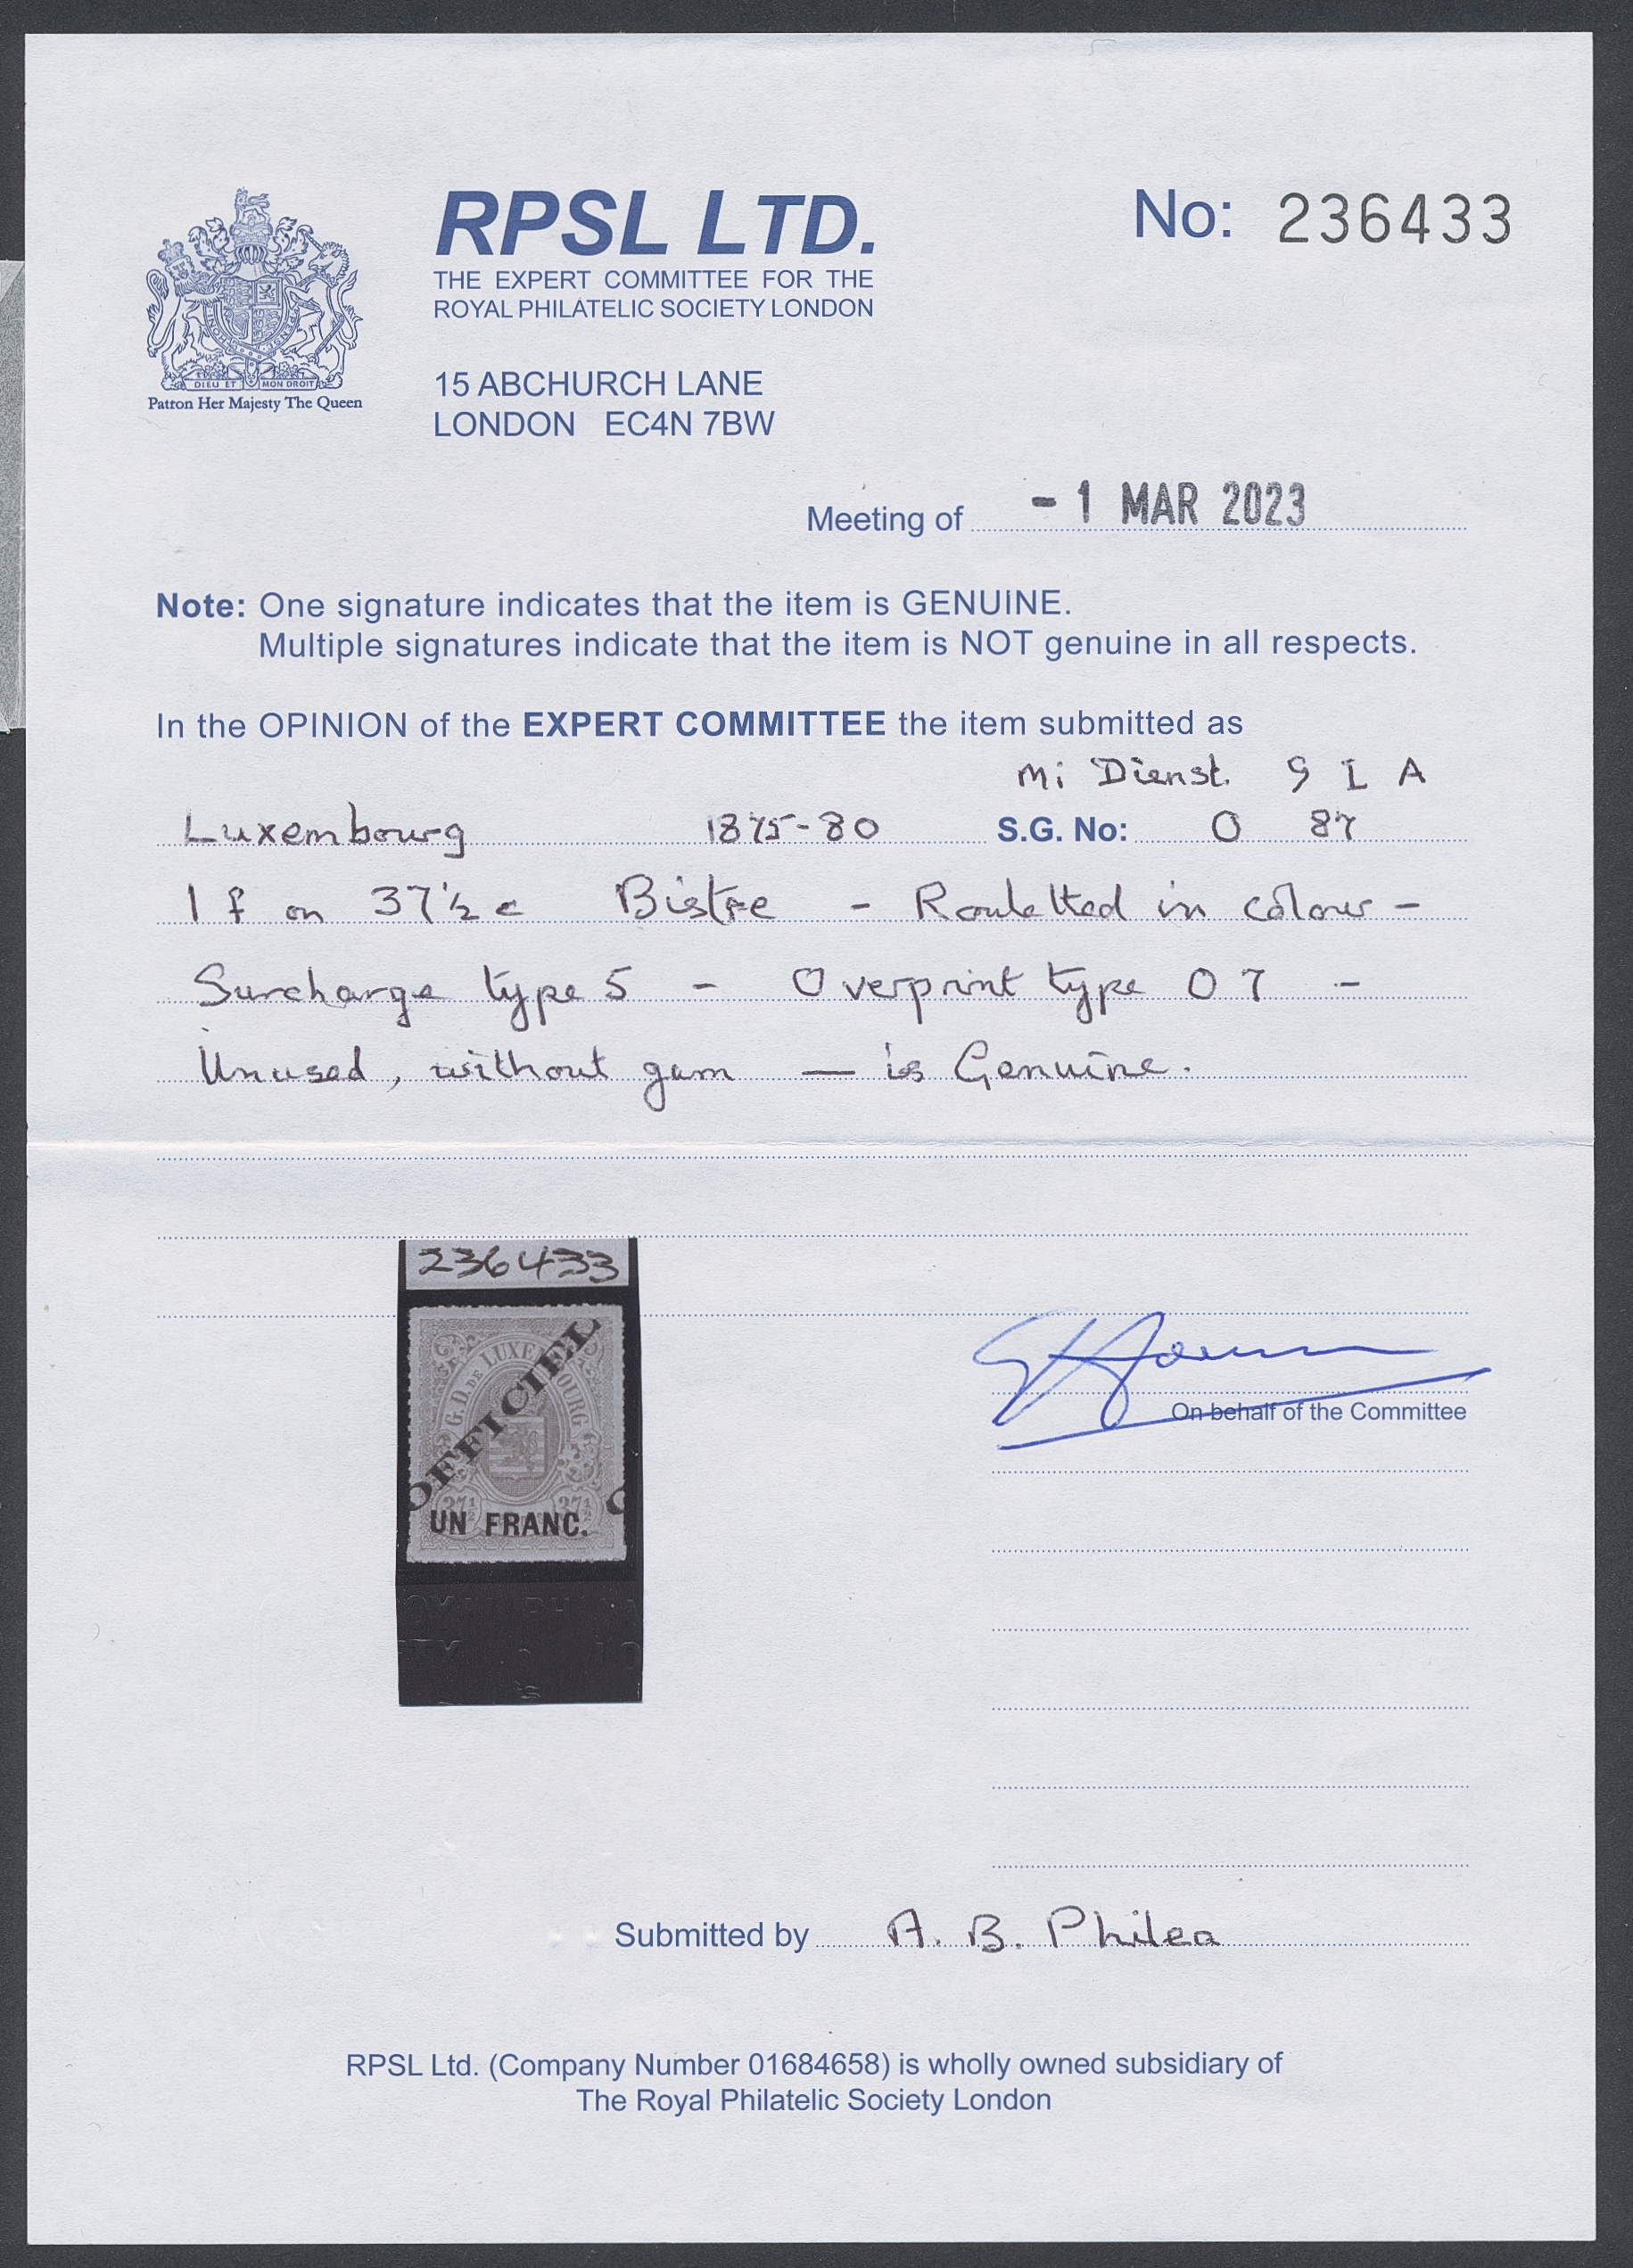 RPSL LTD.
THE EXPERT COMMITTEE FOR THE
ROYAL PHILATELIC SOCIETY LONDON
15 ABCHURCH LANE
LONDON EC4N 7BW
No: 236433
DIEU ET MON DROIT
Patron Her Majesty The Queen
Meeting of - 1 MAR 2023
Note: One signature indicates that the item is GENUINE.
Multiple signatures indicate that the item is NOT genuine in all respects.
In the OPINION of the EXPERT COMMITTEE the item submitted as
Mi Dienst. 9 I A
Luxembourg 1875-80 S.G. No: O 87
1 f on 37½ c Bistre - Rouletted in colour -
Surcharge type 5 - Overprint type O 7 -
Unused, without gum — is Genuine.
236433
G.D. DE LUXEMBOURG
OFFICIEL
37½ 37½
UN FRANC.
On behalf of the Committee
Submitted by A. B. Philea
RPSL Ltd. (Company Number 01684658) is wholly owned subsidiary of
The Royal Philatelic Society London